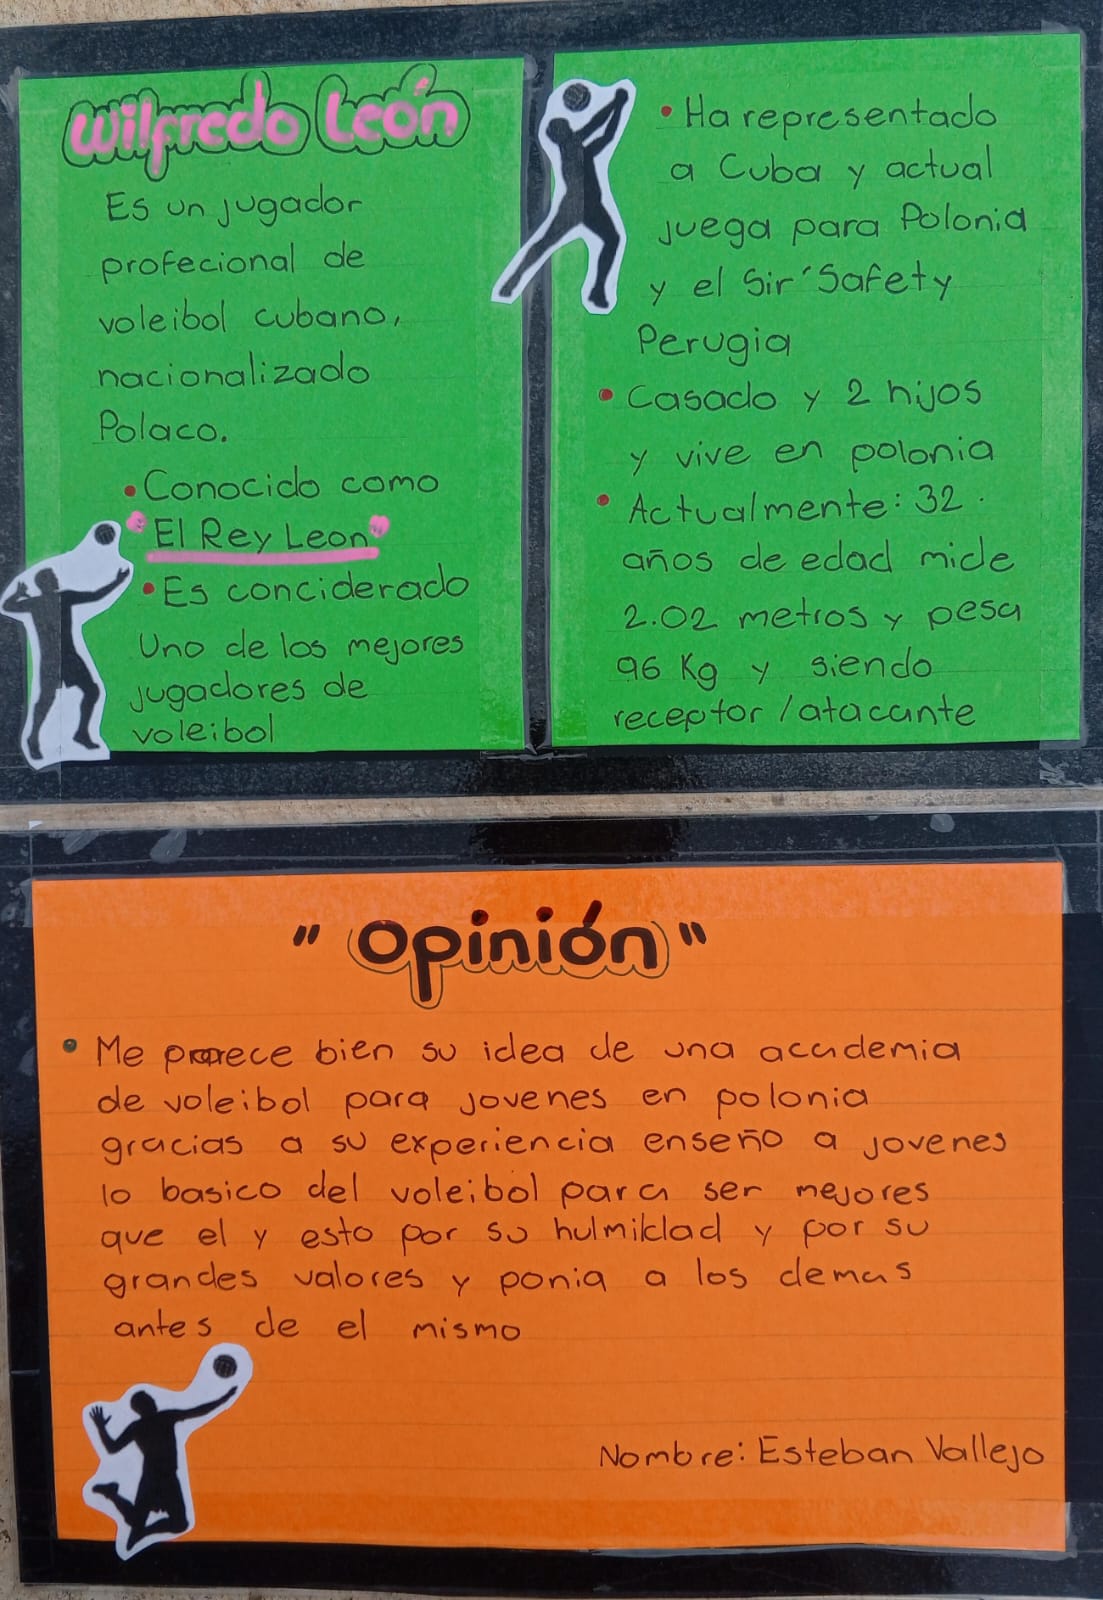 Wilfredo León
Es un jugador
profecional de
voleibol cubano,
nacionalizado
Polaco.
• Conocido como
"El Rey Leon"
• Es conciderado
Uno de los mejores
jugadores de
voleibol
• Ha representado
a Cuba y actual
juega para Polonia
y el Sir Safety
Perugia
• Casado y 2 hijos
y vive en polonia
• Actualmente: 32
años de edad mide
2.02 metros y pesa
96 Kg y siendo
receptor / atacante
"Opinión"
• Me parece bien su idea de una academia
de voleibol para jovenes en polonia
gracias a su experiencia enseño a jovenes
lo basico del voleibol para ser mejores
que el y esto por su hulmildad y por su
grandes valores y ponia a los demas
antes de el mismo
Nombre: Esteban Vallejo